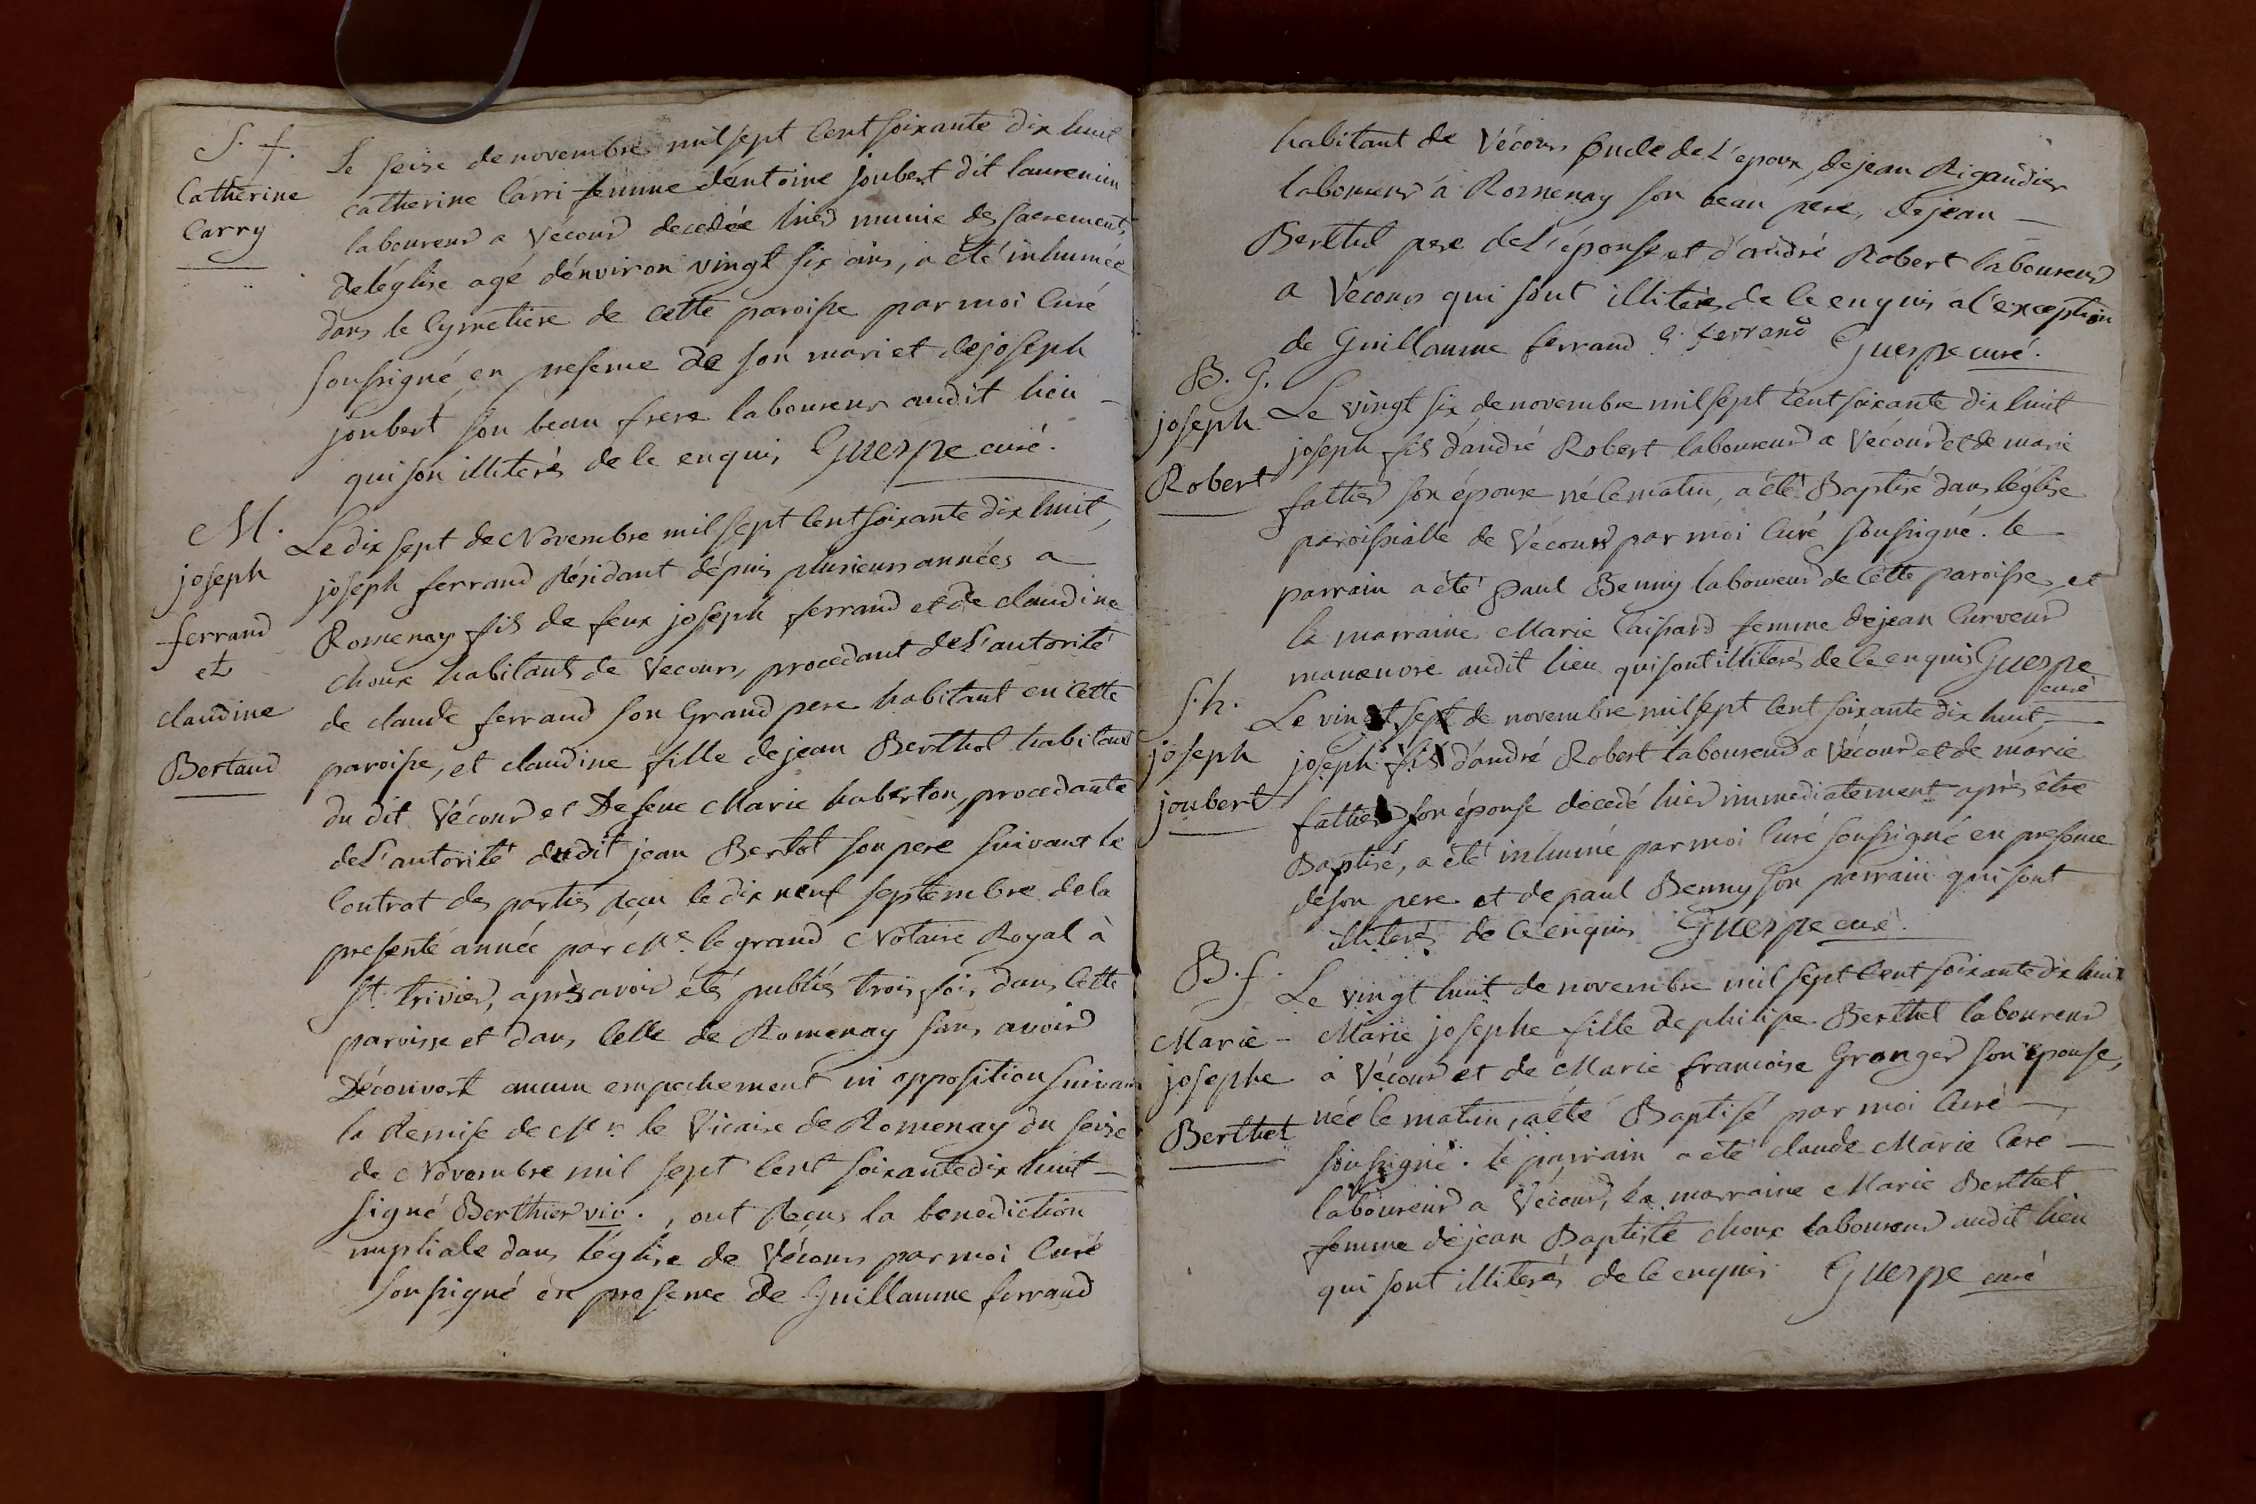 S. f.
Catherine
Carry
Le seise de novembre mil sept cent soixante dix huit
catherine Carri femme d'éntoine joubert dit laurencin
laboureur a Vécour decedée hier munie des sacrements
de léglise agé dénviron vingt six ans, a été inhumée
dans le Cymetiere de cette paroisse par moi Curé
soussigné en presence de son mari et de joseph
joubert son beau frere laboureur audit lieu -
qui son illiterés de ce enquis Guerpe curé.
M.
joseph
ferrand
et
claudine
Bertaud
Le dix sept de Novembre mil sept cent soixante dix huit,
joseph ferrand Résidant dépuis plusieurs années a
Romenay fils de feux joseph ferrand et de claudine
choux habitants de Vecours, procedant de L'autorité
de claude ferrand son Grand pere habitant en cette
paroisse, et claudine fille de jean Berthol habitant
du dit Vécour et De feue Marie haberton, procedante
de L'autorité dudit jean Bertot son pere suivant le
Contrat des parties Reçu le dix neuf septembre de la
presenté année par Me. le grand Notaire Royal à
St. trivier, après avoir étés publiés trois fois dans cette
paroisse et dans Celle de Romenay sans avoir
Découvert aucun empechement ni opposition suivant
la Remise de Mr. le Vicaire de Romenay du seise
de Novembre mil sept Cent soixante dix huit -
signé Berthier vic. , ont Reçus la benediction
nuptiale dans l'église de Vécours par moi Curé
soussigné en presence de Guillaume ferrand
habitant de Vécours oncle de L'epoux, de jean Rigaudier
laboureur à Romenay son beau pere, de jean -
Berthel pere de L'épouse et d'andré Robert laboureur
a Vécours qui sont illiterés de ce enquis a l'exception
de Guillaume ferrand G. ferrand Guerpe curé.
B. G.
joseph
Robert
Le vingt six de novembre mil sept cent soixante dix huit
joseph fils d'andré Robert laboureur a Vécour et de marie
fattier son épouse né le matin, a été Baptisé dans léglise
paroissialle de Vécours par moi Curé soussigné. le -
parrain a été paul Benny laboureur de Cette paroisse, et
la marraine Marie Caispard femme de jean Curveur
manœuvre audit lieu qui sont illiterés de ce enquis Guerpe
curé
S. h.
joseph
joubert
Le vingt sept de novembre mil sept cent soixante dix huit -
joseph fils d'andré Robert laboureur a Vécour et de marie
fattier son épouse decedé hier immediatement après être
Baptisé, a été inhumé par moi Curé soussigné en presence
de son pere et de paul Benny son parrain qui sont
illiterés de ce enquis Guerpe curé.
B. f.
Marie -
josephe
Berthet
Le vingt huit de novembre mil sept cent soixante dix huit
Marie josephe fille de philipe Berthet laboureur
à Vécour et de Marie francoise Granger son épouse,
née le matin, a été Baptisé par moi Curé -
soussigné. le parrain a été claude Marie Caré -
laboureur a Vécour, la marraine Marie Berthet
femme de jean Baptiste choux laboureur audit lieu
qui sont illiterés de ce enquis Guerpe curé